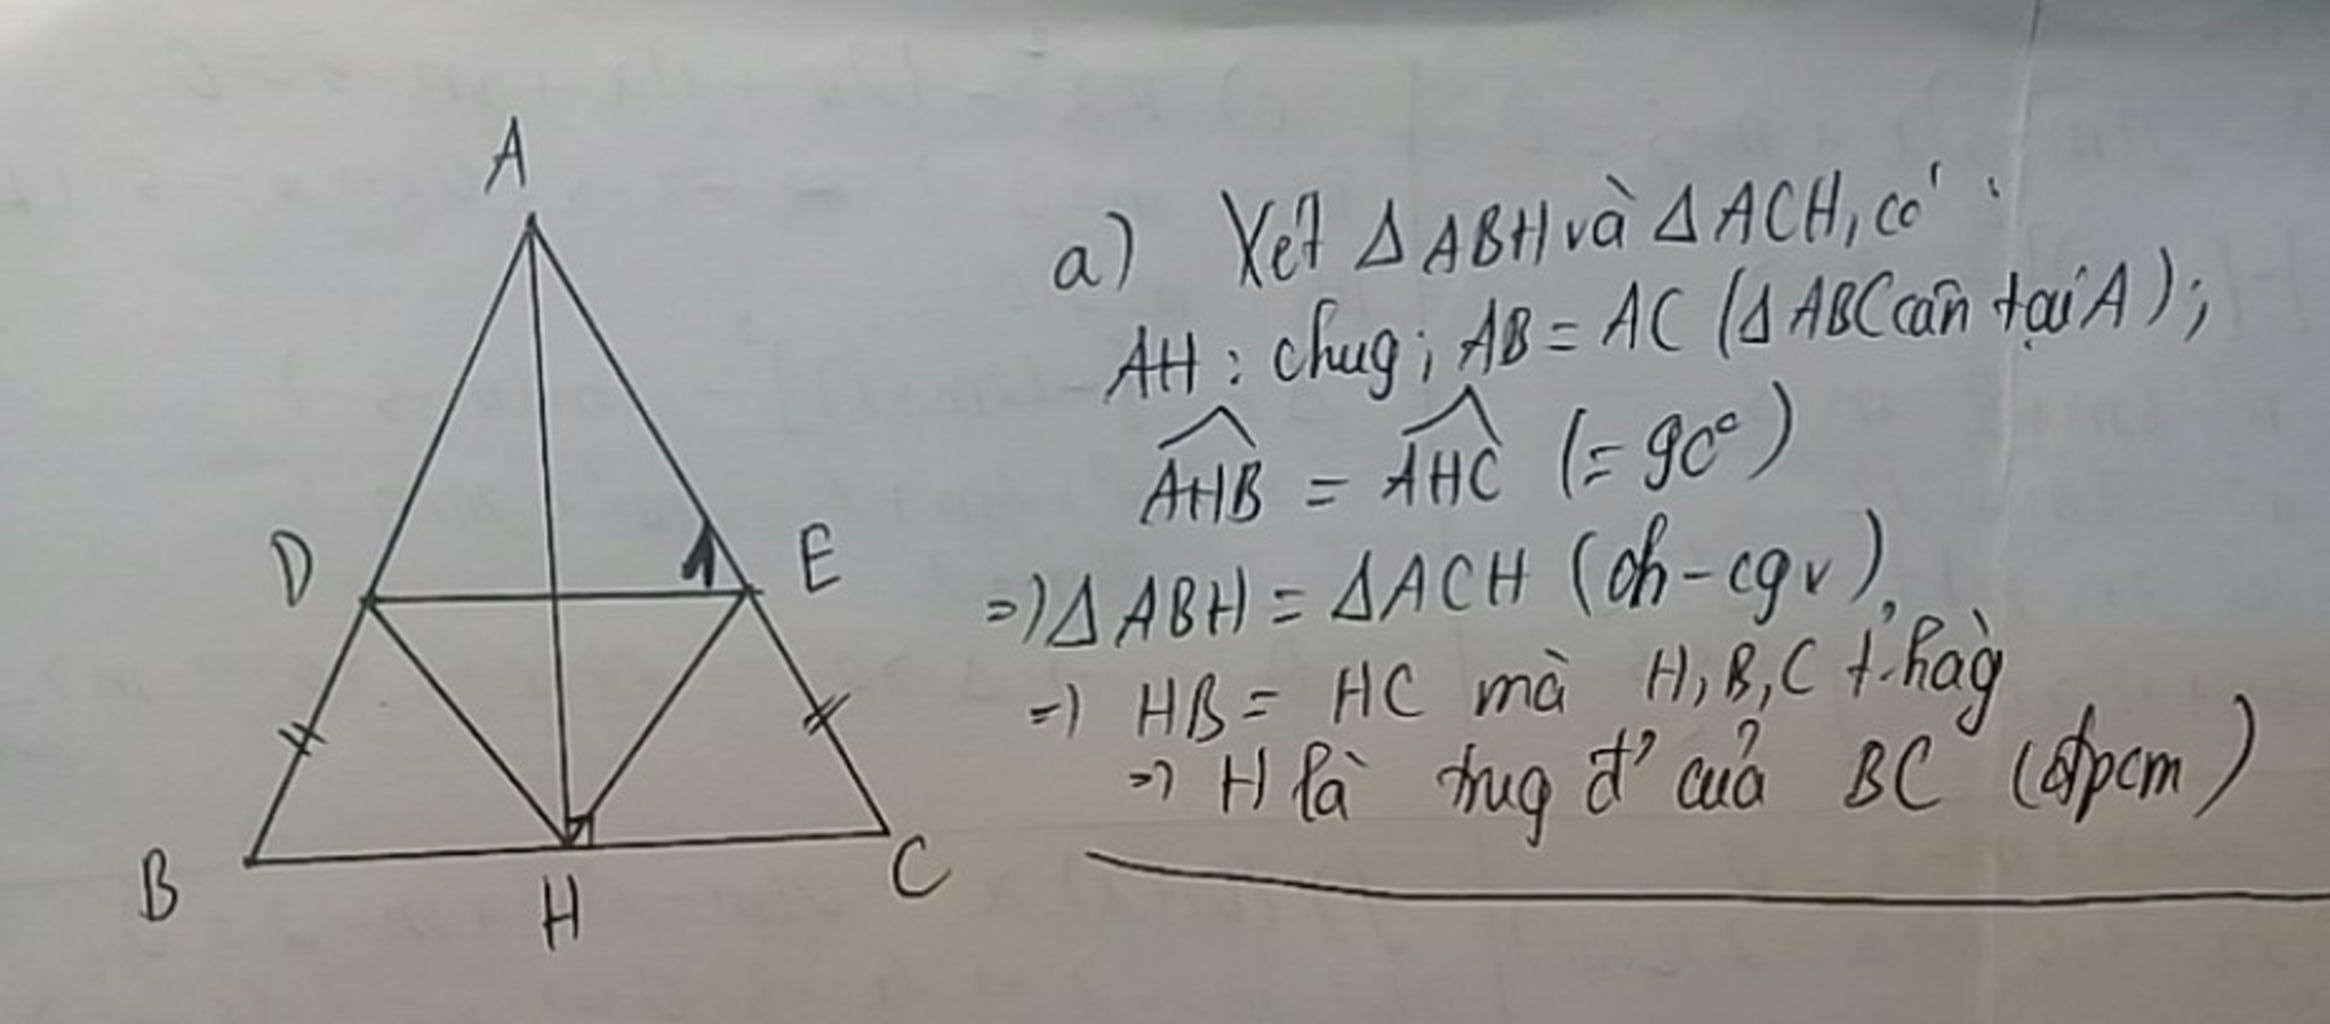 A
D
E
B
H
C
a) Xét Δ ABH và Δ ACH, có:
AH: chug; AB = AC (Δ ABC cân tại A);
AHB = AHC (= 90°)
=> Δ ABH = Δ ACH (ch-cgv)
=> HB = HC mà H, B, C t.hàg
=> H là trug đ' của BC (đpcm)